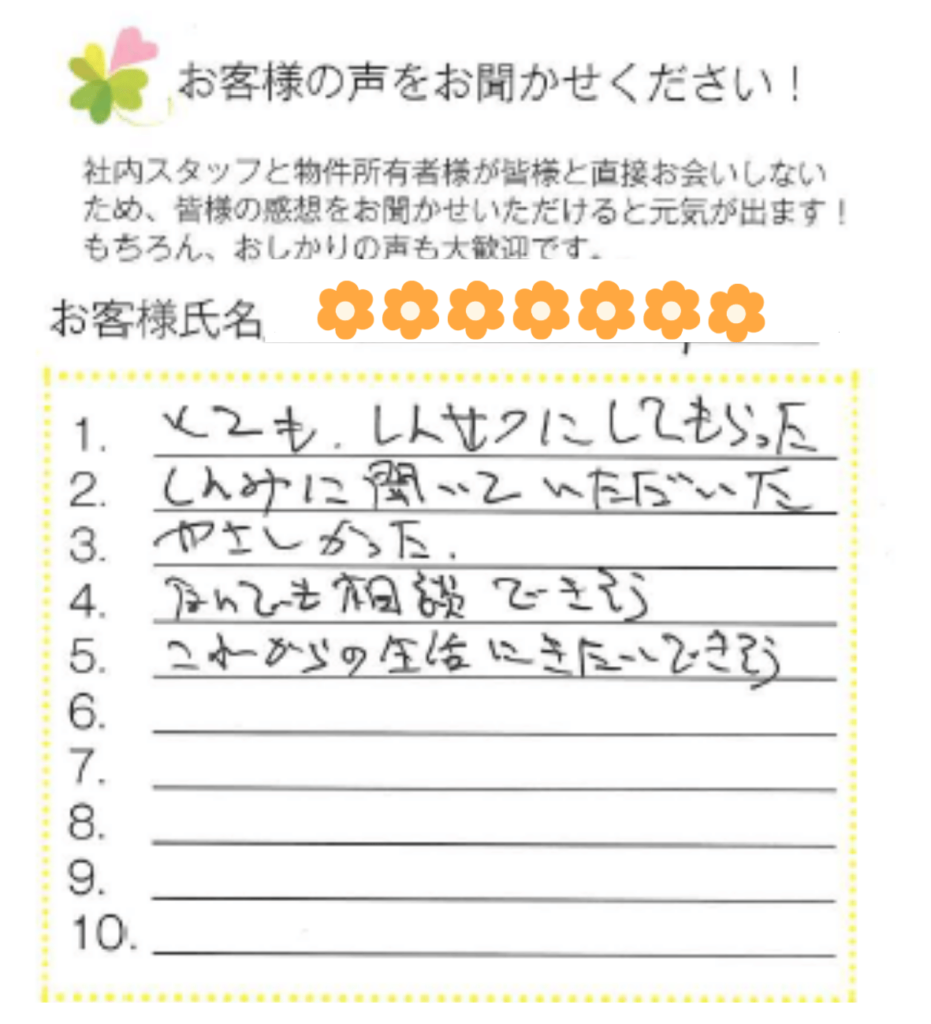 お客様の声をお聞かせください！
社内スタッフと物件所有者様が皆様と直接お会いしない
ため、皆様の感想をお聞かせいただけると元気が出ます！
もちろん、おしかりの声も大歓迎です。
お客様氏名
1. とても、しんせつにしてもらった
2. しんみに聞いていただいた
3. やさしかった.
4. なんでも相談できそう
5. これからの生活にきたいできそう
6.
7.
8.
9.
10.